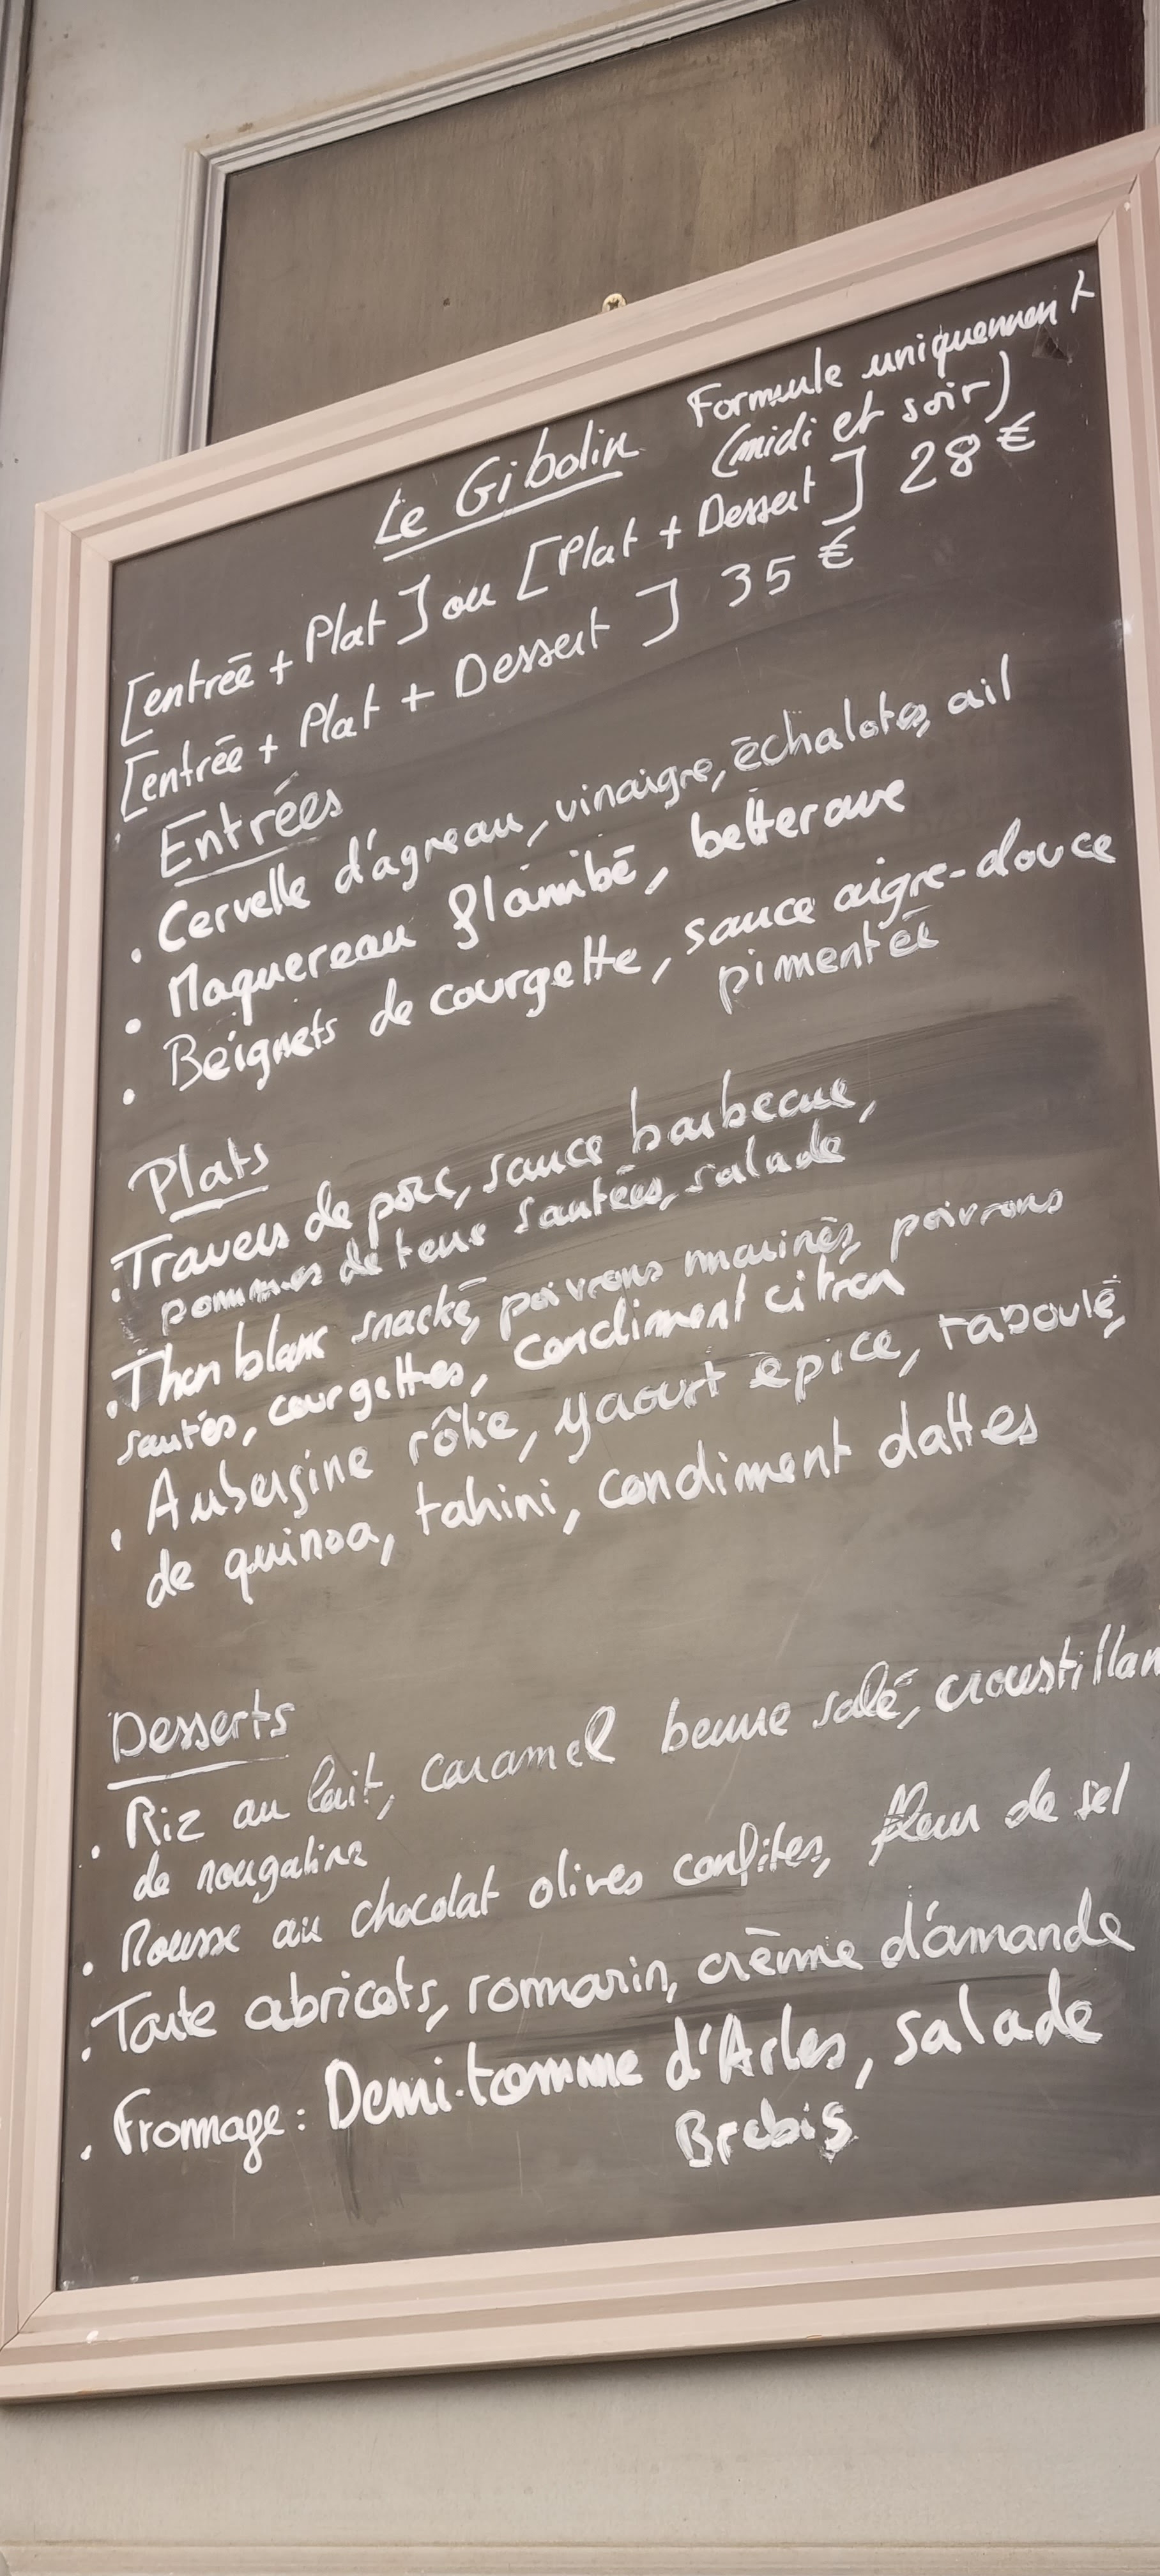 Le Gibolin
Formule uniquement
(midi et soir)
[entrée + Plat] ou [Plat + Dessert] 28 €
[entrée + Plat + Dessert] 35 €
Entrées
• Cervelle d'agneau, vinaigre, échalotes, ail
• Maquereau flambé, betterave
• Beignets de courgette, sauce aigre-douce
pimentée
Plats
• Travers de porc, sauce barbecue,
pommes de terre sautées, salade
• Thon blanc snacké, poivrons marinés, poivrons
sautés, courgettes, condiment citron
• Aubergine rôtie, yaourt épice, taboulé,
de quinoa, tahini, condiment dattes
Desserts
• Riz au lait, caramel beurre salé, croustillan
de nougatine
• Mousse au chocolat olives confites, fleur de sel
• Tarte abricots, romarin, crème d'amande
• Fromage : Demi-tomme d'Arles, salade
Brebis